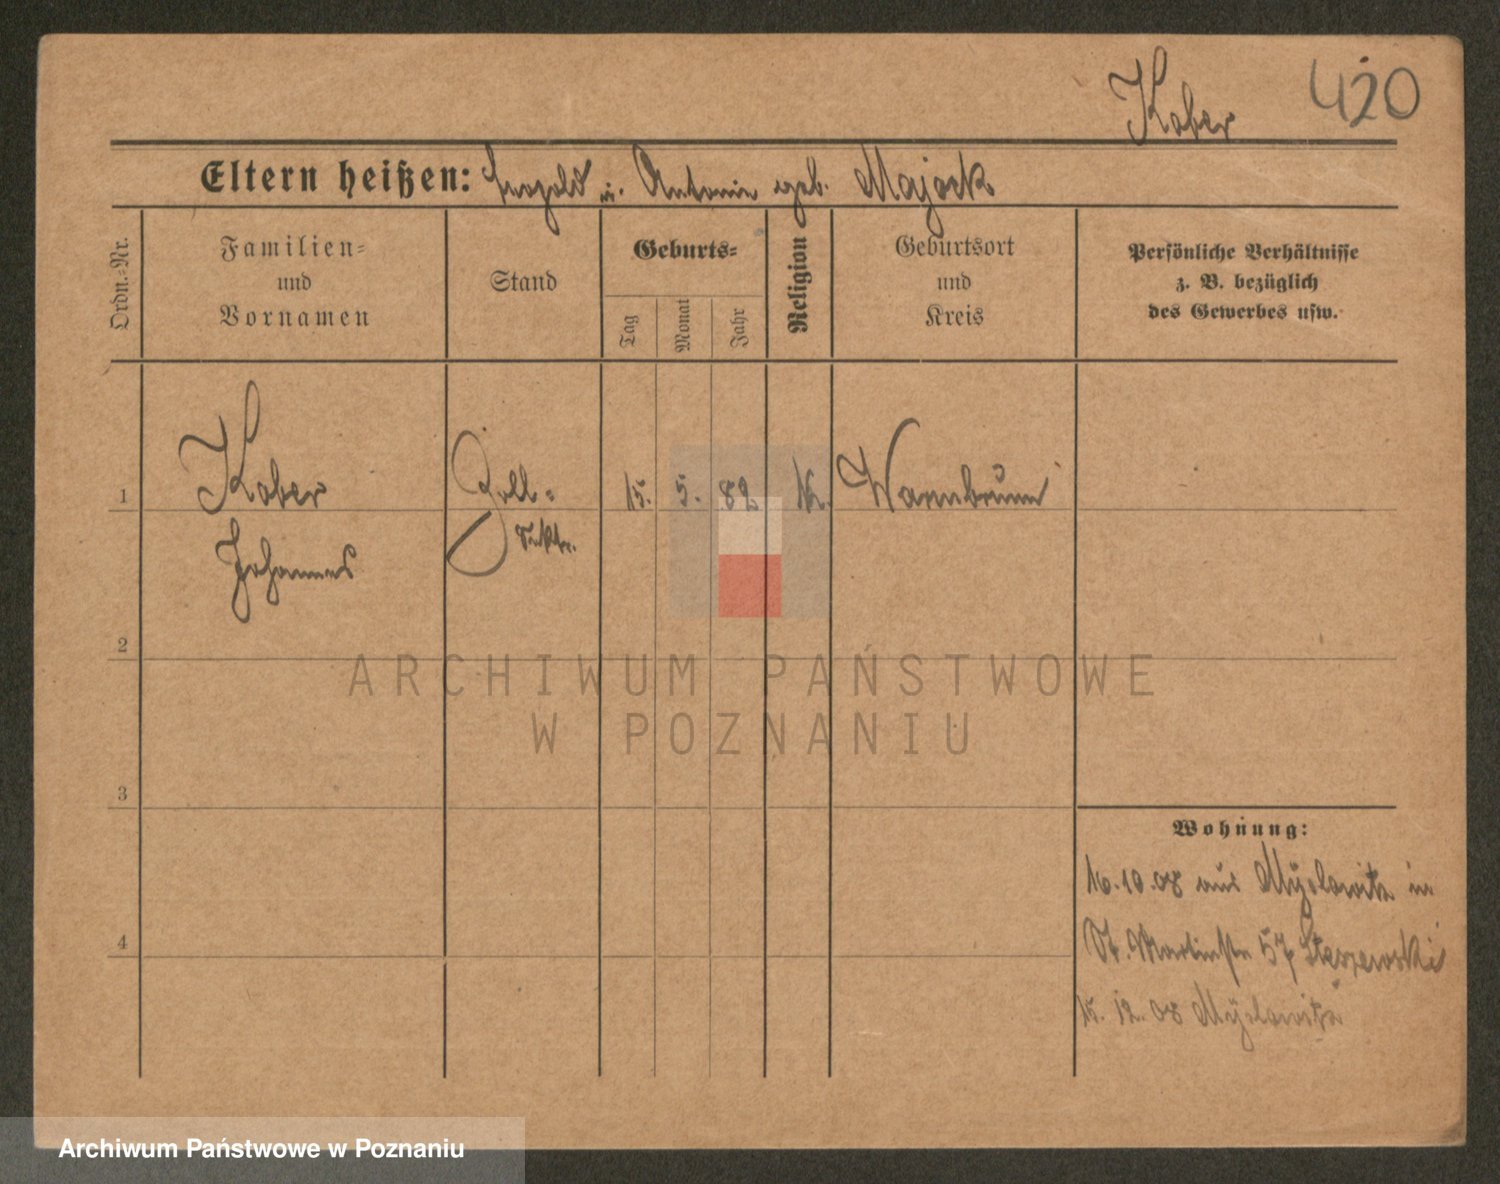 Kober 420
Eltern heißen: Leopold u. Antonie geb. Majock
Ordn.=Nr.
Familien=
und
Vornamen
Stand
Geburts=
Tag
Monat
Jahr
Religion
Geburtsort
und
Kreis
Persönliche Verhältnisse
z. B. bezüglich
des Gewerbes usw.
1 Kober Zoll= 15. 5. 82 k. Warmbrunn
Johannes
2
3
4
Wohnung:
16.10.08 aus Myslowitz in
St. Martinstr 57 Staszewski
15. 12. 08 Myslowitz
ARCHIWUM PAŃSTWOWE
W POZNANIU
Archiwum Państwowe w Poznaniu